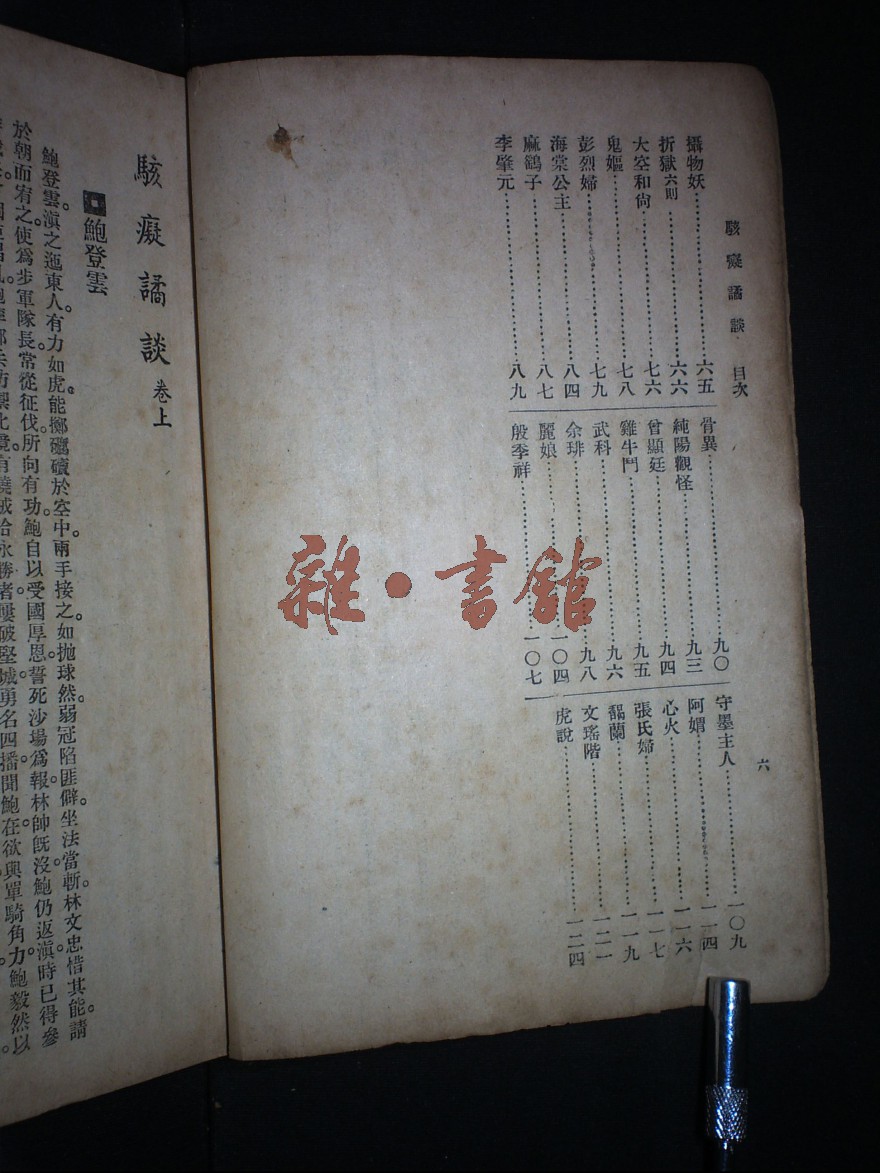 駭癡譎談 目次
六
攝物妖 六五
折獄六則 六六
大空和尚 七六
鬼嫗 七八
彭烈婦 七九
海棠公主 八四
麻鷂子 八七
李肇元 八九
骨異 九〇
純陽觀怪 九三
曾顯廷 九四
雞牛鬥 九五
武科 九六
余琲 九八
麗娘 一〇四
殷季祥 一〇七
守墨主人 一〇九
阿媦 一一四
心火 一一六
張氏婦 一一七
馤蘭 一一九
文瑤階 一二一
虎說 一二四
駭癡譎談 卷上
鮑登雲
鮑登雲。滇之迤東人。有力如虎。能擲礮礩於空中。兩手接之。如抛球然。弱冠陷匪僻。坐法當斬。林文忠惜其能。請
於朝而宥之。使爲步軍隊長。常從征伐。所向有功。鮑自以受國厚恩。誓死沙場爲報。林帥旣沒。鮑仍返滇。時已得參
者。屢破堅城。勇名四播。聞鮑在。欲與單騎角力。鮑毅然以
雜·書館